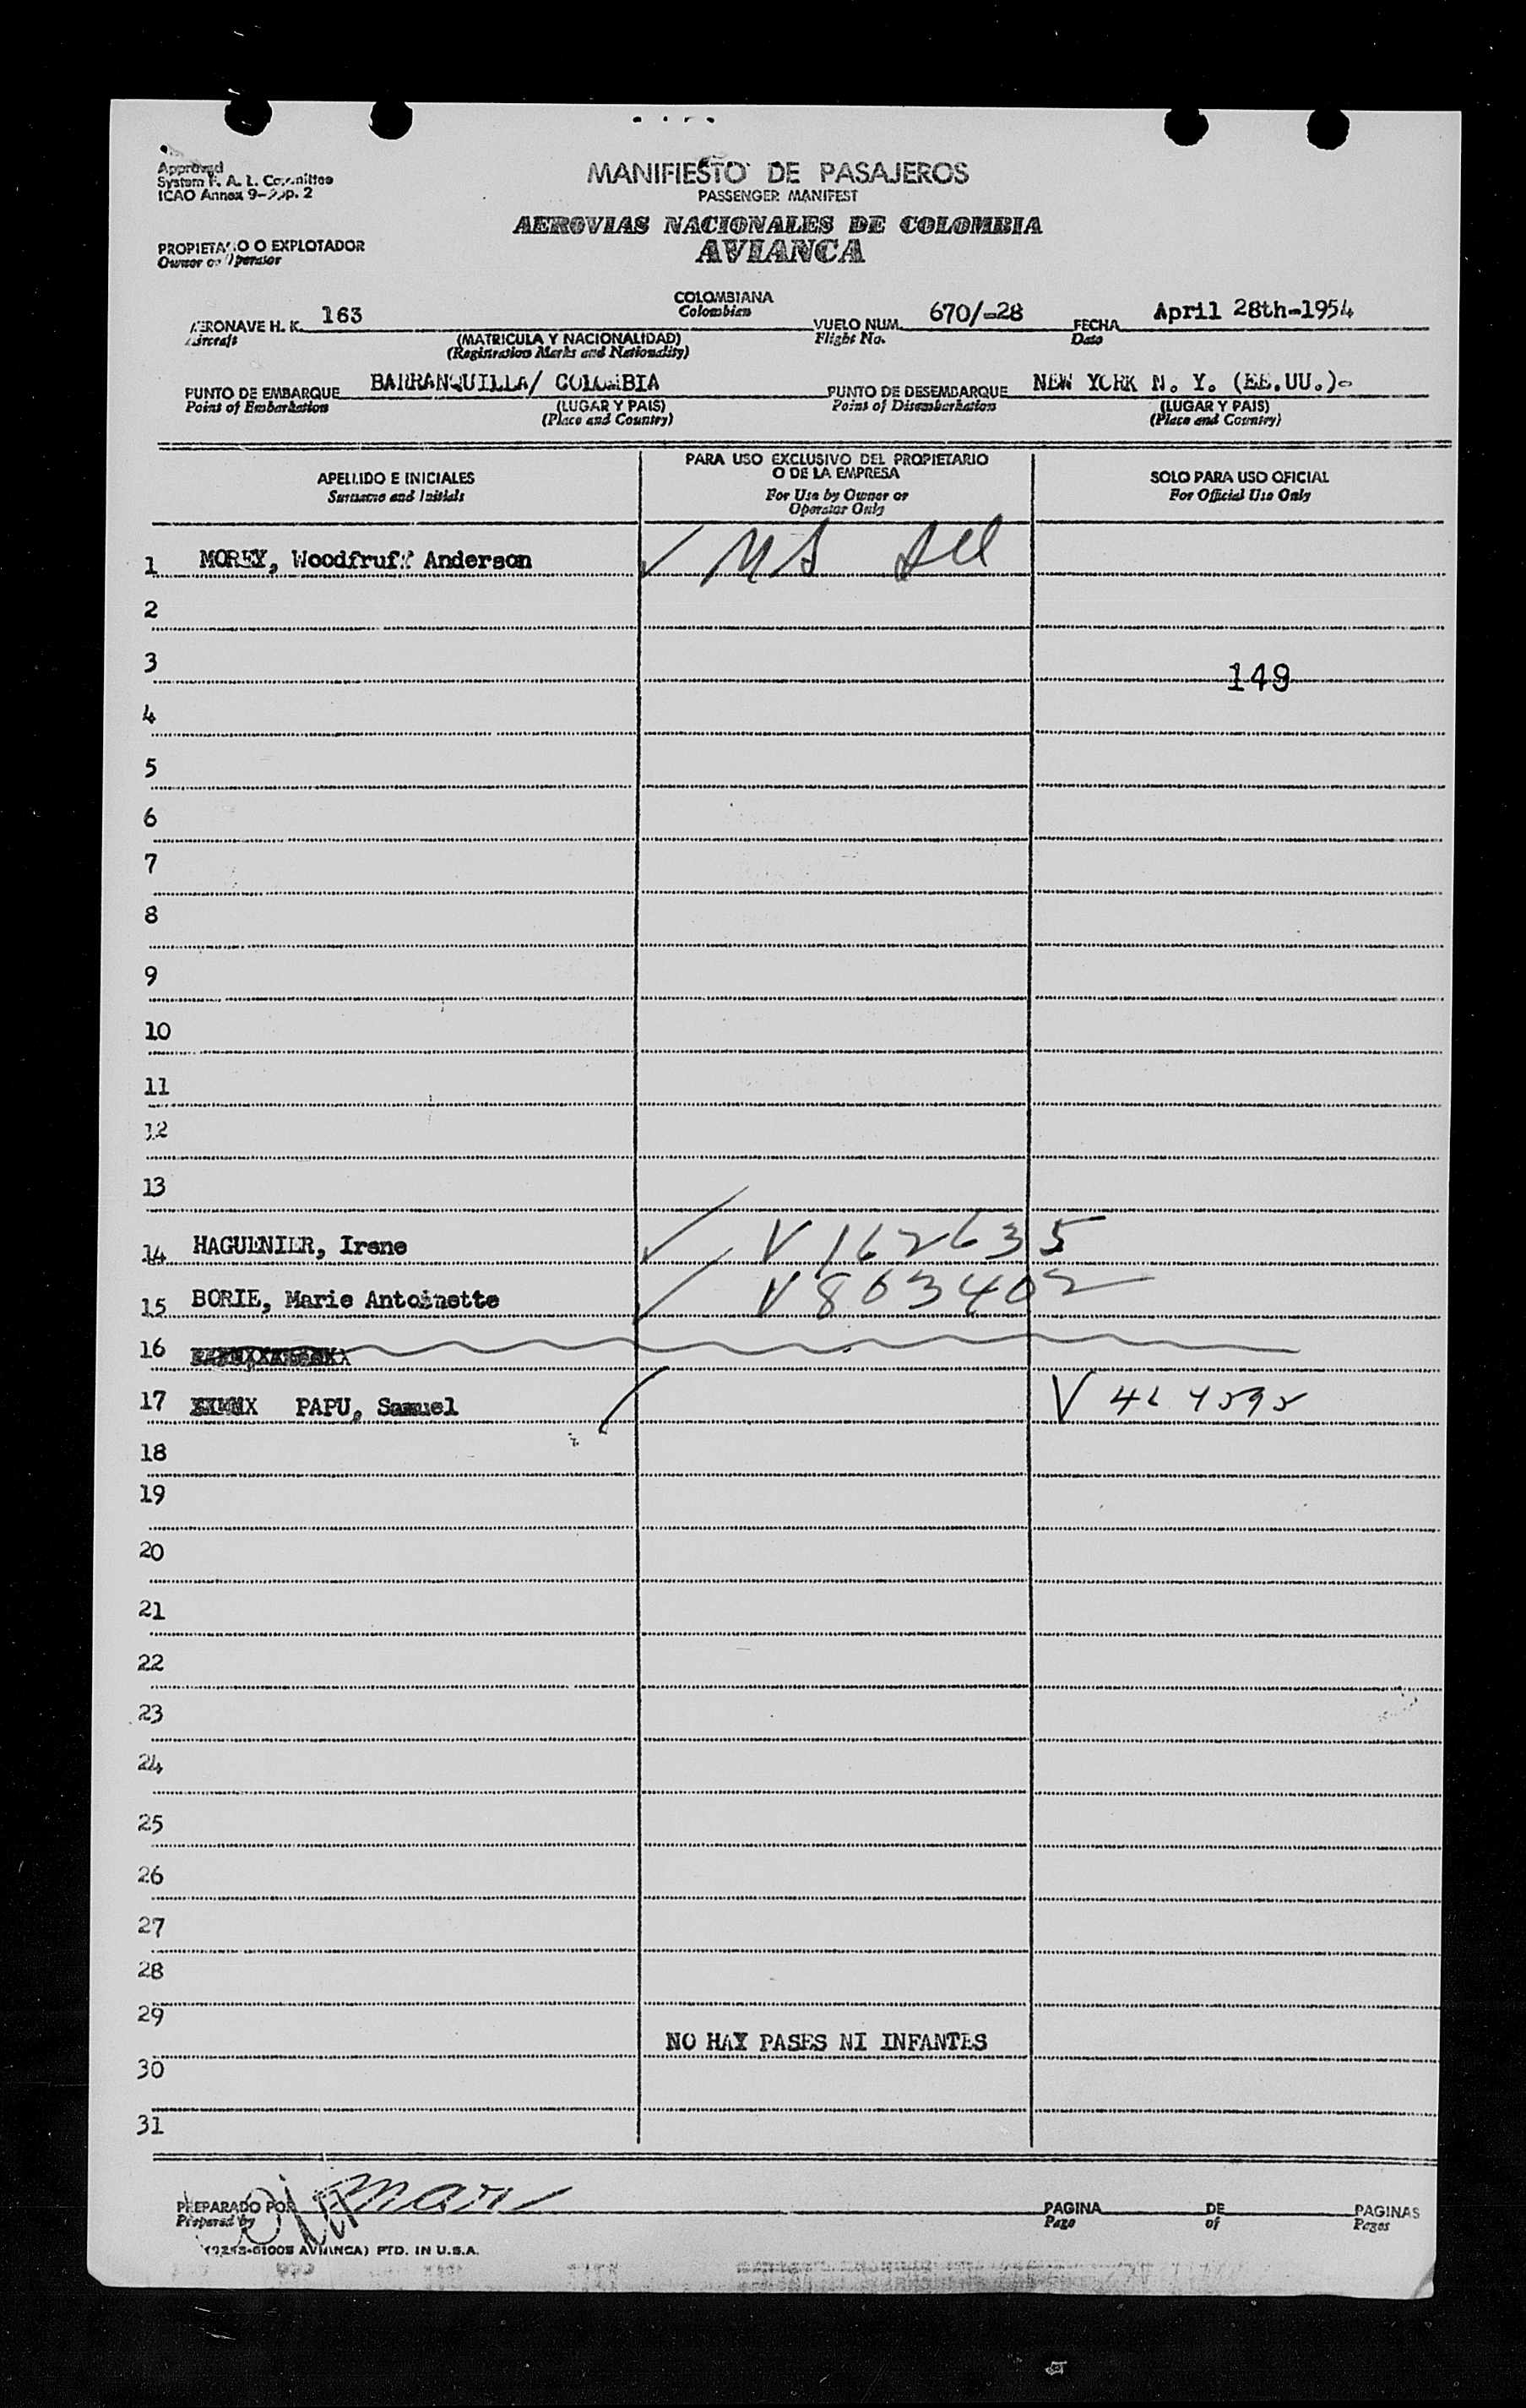 Approved
System F. A. L. Committee
ICAO Annex 9-App. 2
MANIFIESTO DE PASAJEROS
PASSENGER MANIFEST
AEROVIAS NACIONALES DE COLOMBIA
AVIANCA
PROPIETARIO O EXPLOTADOR
Owner or Operator
AERONAVE H. K. 163 COLOMBIANA VUELO NUM. 670/-28 FECHA April 28th-1954
Aircraft (MATRICULA Y NACIONALIDAD) Colombian Flight No. Date
(Registration Marks and Nationality)
PUNTO DE EMBARQUE BARRANQUILLA/ COLOMBIA PUNTO DE DESEMBARQUE NEW YORK N. Y. (EE.UU.)-
Point of Embarkation (LUGAR Y PAIS) Point of Disembarkation (LUGAR Y PAIS)
(Place and Country) (Place and Country)
APELLIDO E INICIALES
Surname and Initials
PARA USO EXCLUSIVO DEL PROPIETARIO
O DE LA EMPRESA
For Use by Owner or
Operator Only
SOLO PARA USO OFICIAL
For Official Use Only
1 MOREY, Woodfruff Anderson
2
3 149
4
5
6
7
8
9
10
11
12
13
14 HAGUENIER, Irene V 162635
15 BORIE, Marie Antoinette V 803402
16
17 PAPU, Samuel
18
19
20
21
22
23
24
25
26
27
28
29
NO HAY PASES NI INFANTES
30
31
PREPARADO POR PAGINA DE PAGINAS
Prepared by Page of Pages
AVIANCA) PTD. IN U.S.A.